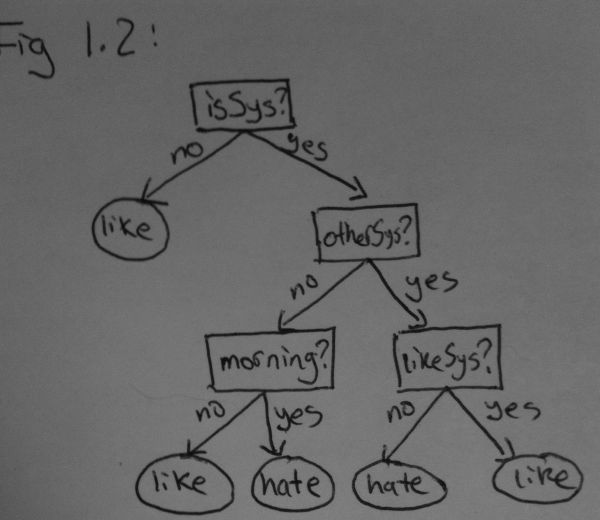 Fig 1.2:
isSys?
no yes
like
otherSys?
no yes
morning? likeSys?
no yes no yes
like hate hate like